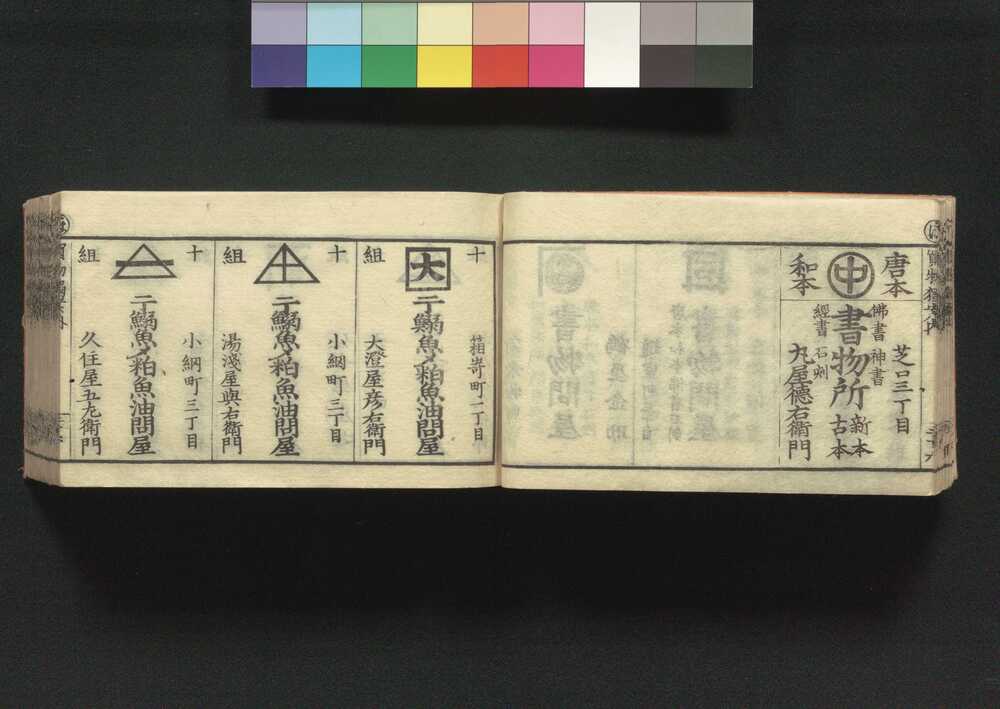 唐本
和本
中
佛書 神書
經書 石刻
書物所
新本
古本
芝口三丁目
丸屋德右衞門
十
組
大
干鰯魚〆粕魚油問屋
箱嵜町二丁目
大澄屋彦右衞門
十
組
干鰯魚〆粕魚油問屋
小網町三丁目
湯淺屋與右衞門
十
組
干鰯魚〆粕魚油問屋
小網町三丁目
久住屋五左衞門